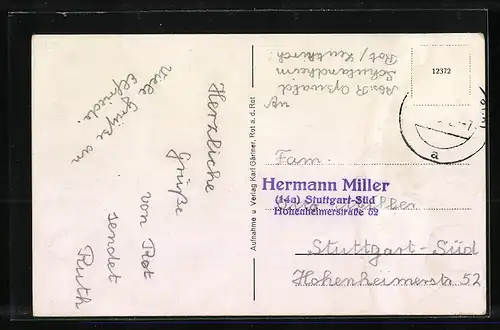 Herzliche
Grüße
von Rot
sendet
Ruth
Viele Grüße an
Elfriede.
Aufnahme u Verlag Karl Gärtner, Rot a. d. Rot
Schullandheim
Rot /
12372
Fam.
Hermann Miller
(14a) Stuttgart-Süd
Hohenheimerstraße 52
Stuttgart-Süd
Hohenheimerstr 52